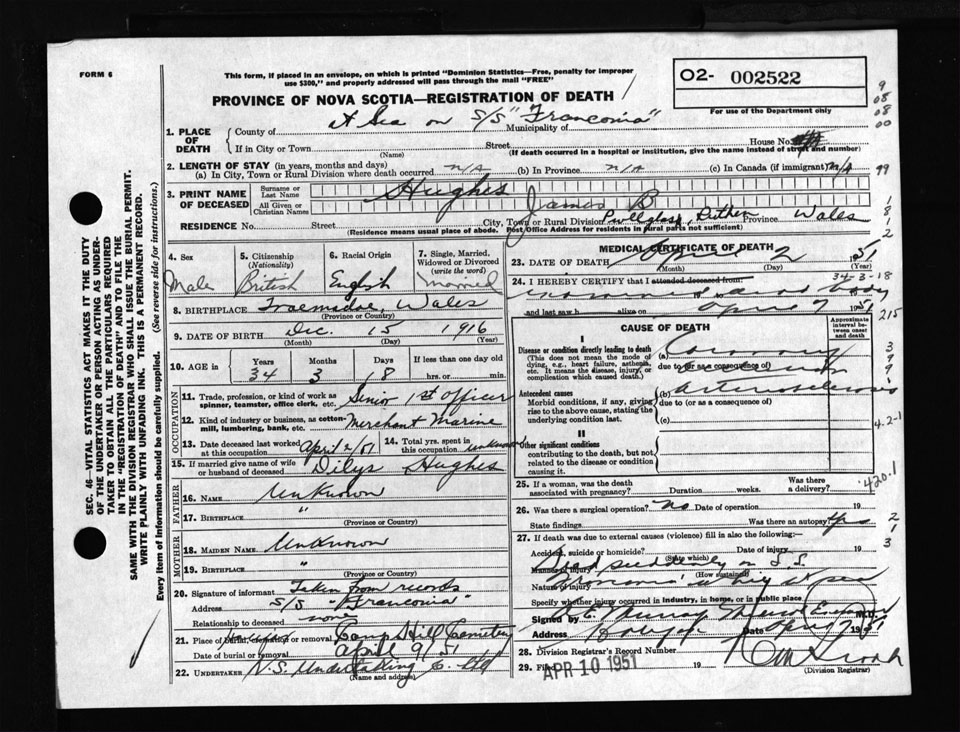 FORM 6
This form, if placed in an envelope, on which is printed "Dominion Statistics—Free, penalty for improper
use $300," and properly addressed will pass through the mail "FREE"
O2- 002522
For use of the Department only
PROVINCE OF NOVA SCOTIA—REGISTRATION OF DEATH
1. PLACE OF DEATH
County of At Sea on S/S "Franconia" Municipality of
If in City or Town Street House No.
(Name) (If death occurred in a hospital or institution, give the name instead of street and number)
2. LENGTH OF STAY (in years, months and days)
(a) In City, Town or Rural Division where death occurred n/a (b) In Province n/a (c) In Canada (if immigrant) n/a
3. PRINT NAME OF DECEASED
Surname or Last Name Hughes
All Given or Christian Names James B
RESIDENCE No. Street City, Town or Rural Division Ruthen Province Wales
(Residence means usual place of abode. Post Office Address for Residents in rural parts not sufficient)
4. Sex Male
5. Citizenship (Nationality) British
6. Racial Origin English
7. Single, Married, Widowed or Divorced (write the word) Married
8. BIRTHPLACE Wales
(Province or Country)
9. DATE OF BIRTH Dec. 15 1916
(Month) (Day) (Year)
10. AGE in Years 34 Months 3 Days 18 If less than one day old hrs. or min.
OCCUPATION
11. Trade, profession, or kind of work as spinner, teamster, office clerk, etc. Senior 1st Officer
12. Kind of industry or business, as cotton-mill, lumbering, bank, etc. Merchant Marine
13. Date deceased last worked at this occupation April 2/51
14. Total yrs. spent in this occupation unknown
15. If married give name of wife or husband of deceased Dilys Hughes
FATHER
16. NAME Unknown
17. BIRTHPLACE "
(Province or Country)
MOTHER
18. MAIDEN NAME Unknown
19. BIRTHPLACE "
(Province or Country)
20. Signature of informant Taken from records
Address S/S "Franconia"
Relationship to deceased none
21. Place of burial, cremation or removal Camp Hill Cemetery
Date of burial or removal April 9/51
22. UNDERTAKER N.S. Undertaking C. Ltd
(Name and Address)
MEDICAL CERTIFICATE OF DEATH
23. DATE OF DEATH April 2 1951
(Month) (Day) (Year)
34-3-18
24. I HEREBY CERTIFY that I attended deceased from:
dead body
and last saw h alive on April 7 1951
215
CAUSE OF DEATH
Approximate interval between onset and death
I
Disease or condition directly leading to death
(This does not mean the mode of dying, e.g., heart failure, asthenia, etc. It means the disease, injury, or complication which caused death.)
(a) Coronary
due to (or as a consequence of)
Antecedent causes
Morbid conditions, if any, giving rise to the above cause, stating the underlying condition last.
(b) arteriosclerosis
due to (or as a consequence of)
(c)
4.2-1
II
Other significant conditions
contributing to the death, but not related to the disease or condition causing it.
420.1
25. If a woman, was the death associated with pregnancy? Duration weeks. Was there a delivery?
26. Was there a surgical operation? No Date of operation 19
State findings Was there an autopsy? yes
27. If death was due to external causes (violence) fill in also the following:—
Accident, suicide or homicide? Date of injury 19
(State which)
Manner of injury Died suddenly on S.S.
(How sustained)
Nature of injury
Specify whether injury occurred in industry, in home, or in public place
Signed by Murray Medical Examiner M.D.
Address Date April 7 1951
28. Division Registrar's Record Number
29. Filed APR 10 1951 19
(Division Registrar)
SEC. 46—VITAL STATISTICS ACT MAKES IT THE DUTY
OF THE UNDERTAKER OR PERSON ACTING AS UNDER-
TAKER TO OBTAIN ALL THE PARTICULARS REQUIRED
IN THE "REGISTRATION OF DEATH" AND TO FILE THE
SAME WITH THE DIVISION REGISTRAR WHO SHALL ISSUE THE BURIAL PERMIT.
WRITE PLAINLY WITH UNFADING INK. THIS IS A PERMANENT RECORD.
Every item of information should be carefully supplied. (See reverse side for instructions.)